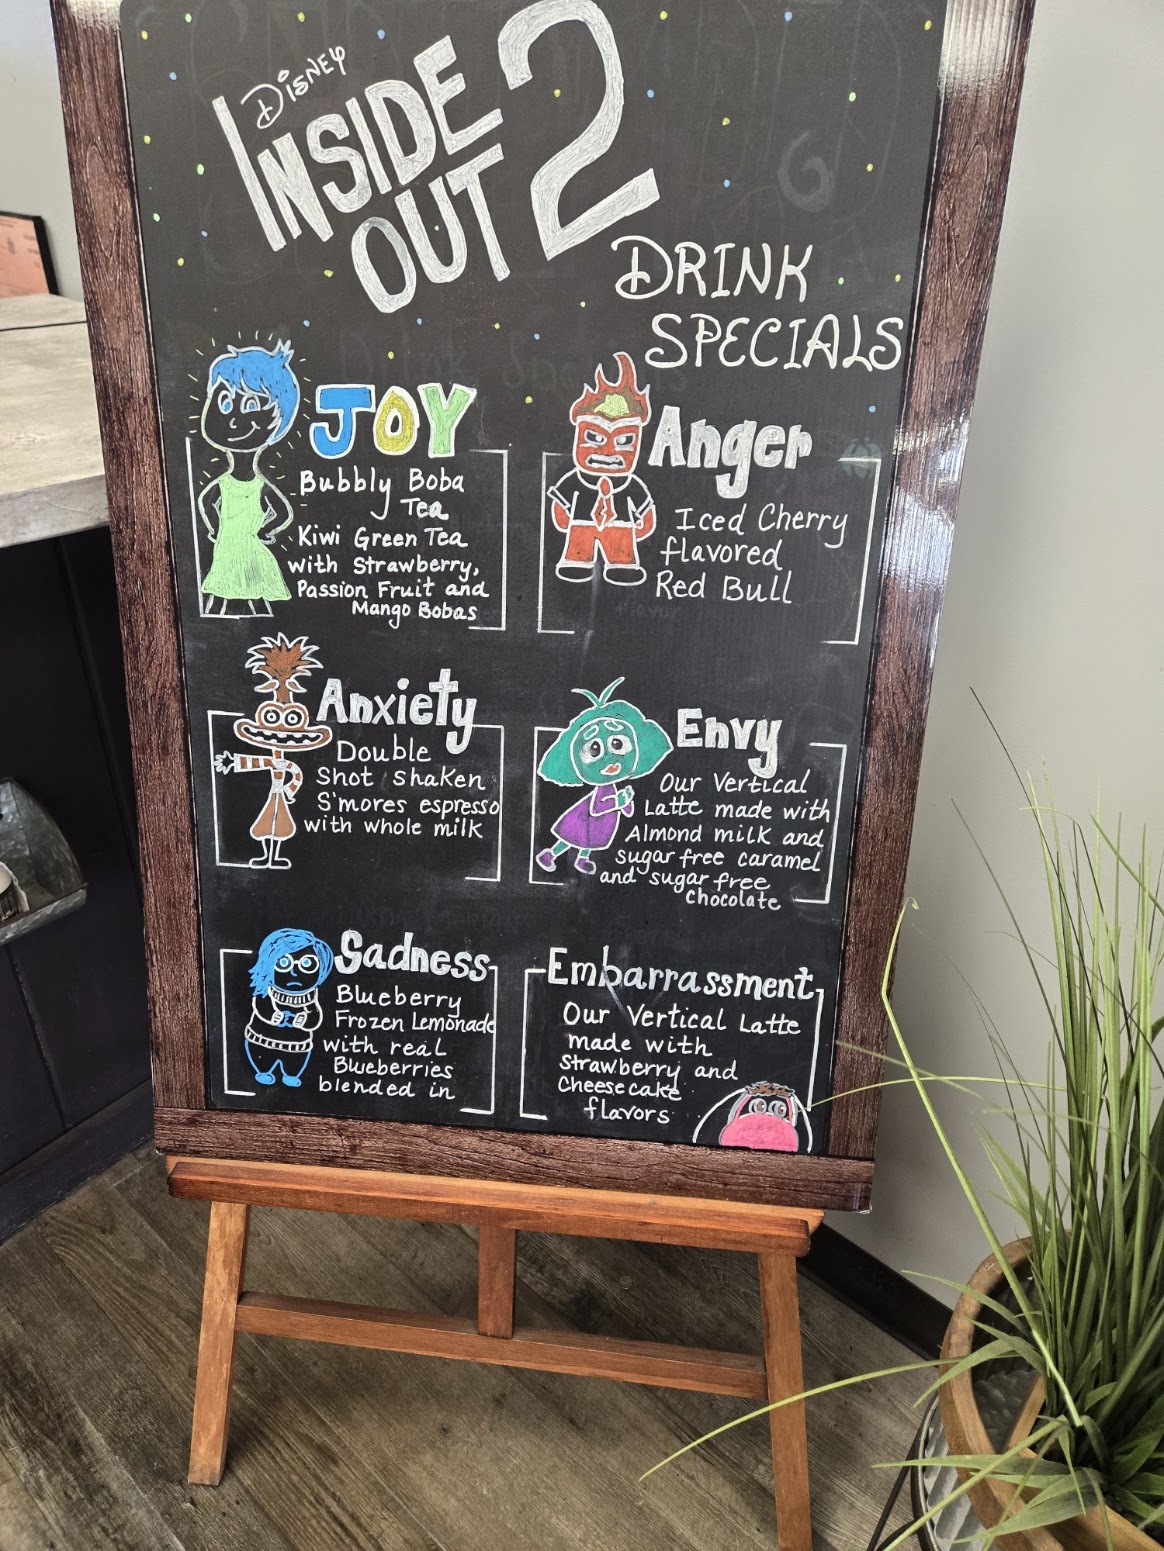 Disney
INSIDE
OUT 2
DRINK
SPECIALS
JOY
Bubbly Boba
Tea
Kiwi Green Tea
with Strawberry,
Passion Fruit and
Mango Bobas
Anger
Iced Cherry
flavored
Red Bull
Anxiety
Double
Shot shaken
S'mores espresso
with whole milk
Envy
Our Vertical
Latte made with
Almond milk and
sugar free caramel
and sugar free
chocolate
Sadness
Blueberry
Frozen Lemonade
with real
Blueberries
blended in
Embarrassment
Our Vertical Latte
made with
strawberry and
Cheesecake
flavors